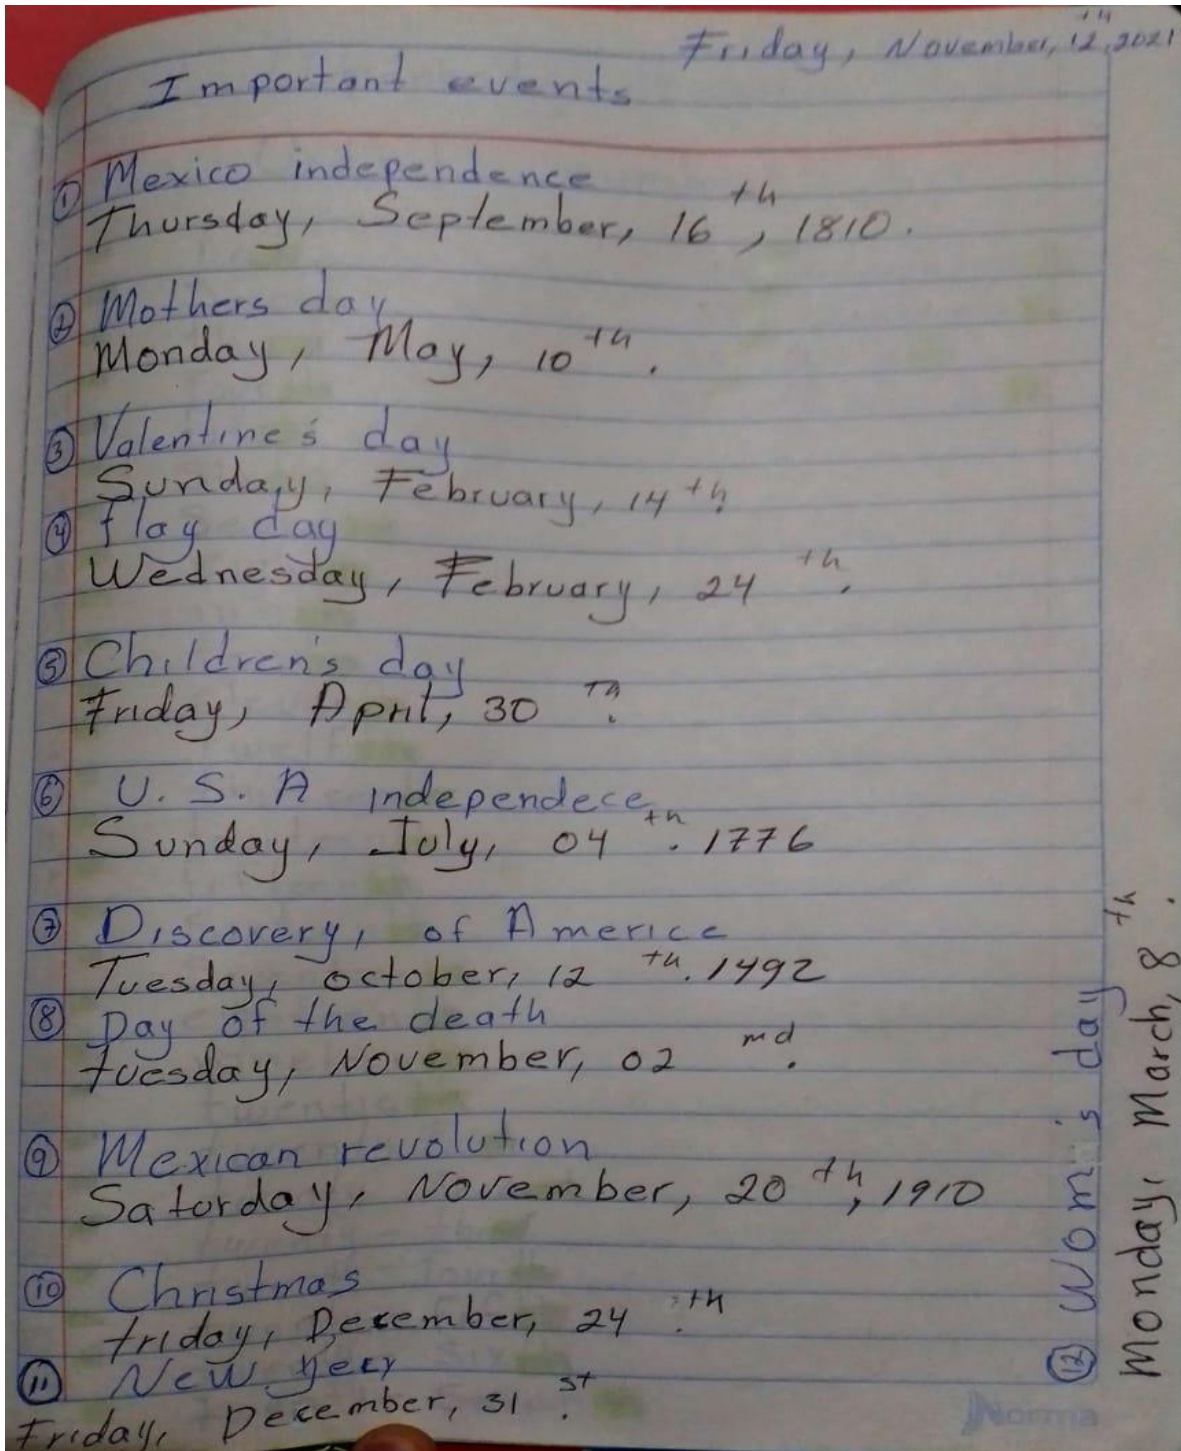 Friday, November, 12th, 2021
Important events
① Mexico independence
Thursday, September, 16th, 1810.
② Mothers day
Monday, May, 10th.
③ Valentine's day
Sunday, February, 14th.
④ flag day
Wednesday, February, 24th.
⑤ Children's day
Friday, April, 30Th.
⑥ U. S. A independece
Sunday, July, 04th. 1776
⑦ Discovery, of Americe
Tuesday, october, 12th. 1492
⑧ Day of the death
tuesday, November, 02md.
⑨ Mexican revolution
Saturday, November, 20th, 1910
⑩ Christmas
friday, December, 24th.
⑪ New yecr
Friday, December, 31st.
⑫ Wom's day
Monday, March, 8th.
Norma